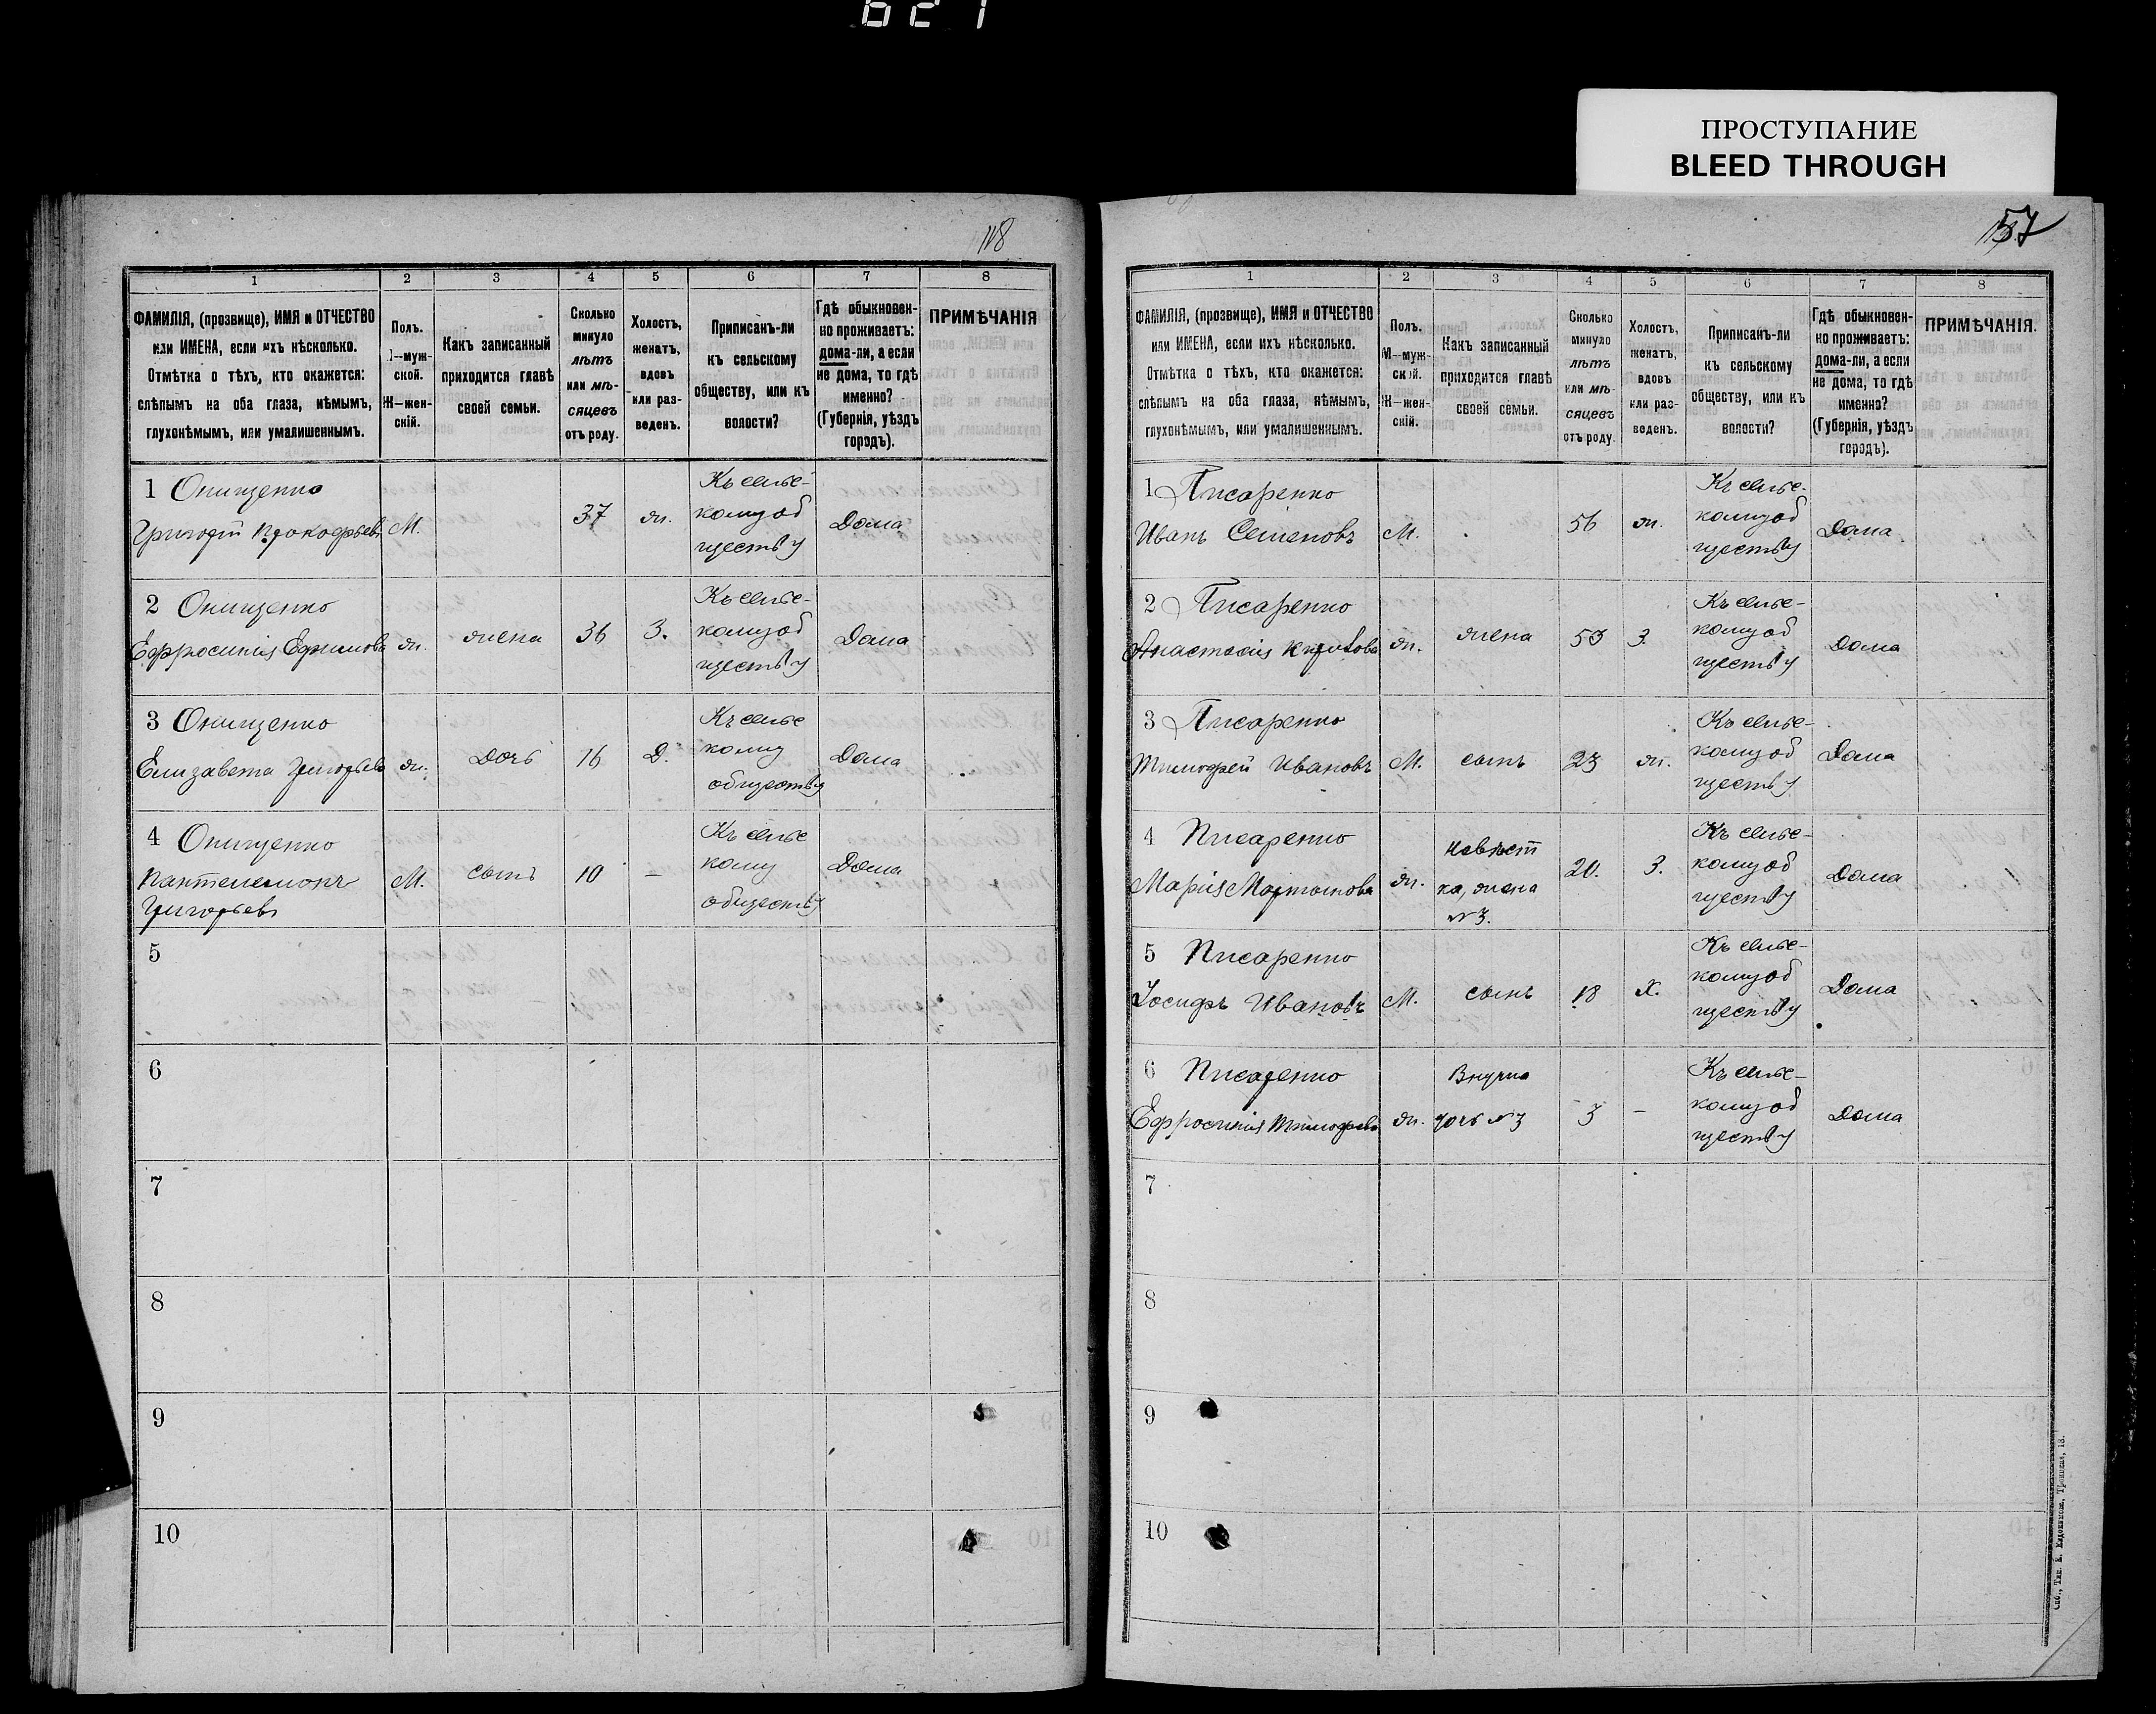 621
ПРОСТУПАНИЕ
BLEED THROUGH
118
57
1 2 3 4 5 6 7 8
ФАМИЛІЯ, (прозвище), ИМЯ и ОТЧЕСТВО
или ИМЕНА, если ихъ нѣсколько.
Отмѣтка о тѣхъ, кто окажется:
слѣпымъ на оба глаза, нѣмымъ,
глухонѣмымъ, или умалишеннымъ.
Полъ.
М—муж-
ской.
Ж—жен-
скій.
Какъ записанный
приходится главѣ
своей семьи.
Сколько
минуло
лѣтъ
или мѣ-
сяцевъ
отъ роду.
Холостъ,
женатъ,
вдовъ
или раз-
веденъ.
Приписанъ-ли
къ сельскому
обществу, или къ
волости?
Гдѣ обыкновен-
но проживаетъ:
дома-ли, а если
не дома, то гдѣ
именно?
(Губернія, уѣздъ
городъ).
ПРИМѢЧАНІЯ
1 Онищенко
Григорій Прокофьевъ М. 37 ж.
Къ сель-
скому об
ществу
Дома
2 Онищенко
Ефросинія Ефимова ж. жена 36 З.
Къ сель-
скому об
ществу
Дома
3 Онищенко
Елизавета Григорьева ж. Дочь 16 Д.
Къ сель
кому
обществу
Дома
4 Онищенко
Пантелемонъ
Григорьевъ
М. сынъ 10 —
Къ сель
кому
обществу
Дома
5
6
7
8
9
10
1 2 3 4 5 6 7 8
ФАМИЛІЯ, (прозвище), ИМЯ и ОТЧЕСТВО
или ИМЕНА, если ихъ нѣсколько.
Отмѣтка о тѣхъ, кто окажется:
слѣпымъ на оба глаза, нѣмымъ,
глухонѣмымъ, или умалишеннымъ.
Полъ.
М—муж-
ской.
Ж—жен-
скій.
Какъ записанный
приходится главѣ
своей семьи.
Сколько
минуло
лѣтъ
или мѣ-
сяцевъ
отъ роду.
Холостъ,
женатъ,
вдовъ
или раз-
веденъ.
Приписанъ-ли
къ сельскому
обществу, или къ
волости?
Гдѣ обыкновен-
но проживаетъ:
дома-ли, а если
не дома, то гдѣ
именно?
(Губернія, уѣздъ
городъ).
ПРИМѢЧАНІЯ.
1 Писаренко
Иванъ Семеновъ М. 56 ж.
Къ сель-
кому об
ществу
Дома
2 Писаренко
Анастасія ж. жена 53 З.
Къ сель-
кому об
ществу
Дома
3 Писаренко
Тимофей Ивановъ М. сынъ 23 ж.
Къ сель-
кому об
ществу
Дома
4 Писаренко
Марія Мартынова ж.
Невѣст
ка, жена
№3.
20. З.
Къ сель-
кому об
ществу
Дома
5 Писаренко
Іосифъ Ивановъ М. сынъ 18 Х.
Къ сель-
кому об
ществу
Дома
6 Писаренко
Ефросинія Тимофеева ж.
Внучка
дочь №3
3 —
Къ сель-
кому об
ществу
Дома
7
8
9
10
Спб., Тип. Е. Евдокимова, Троицкая, 18.